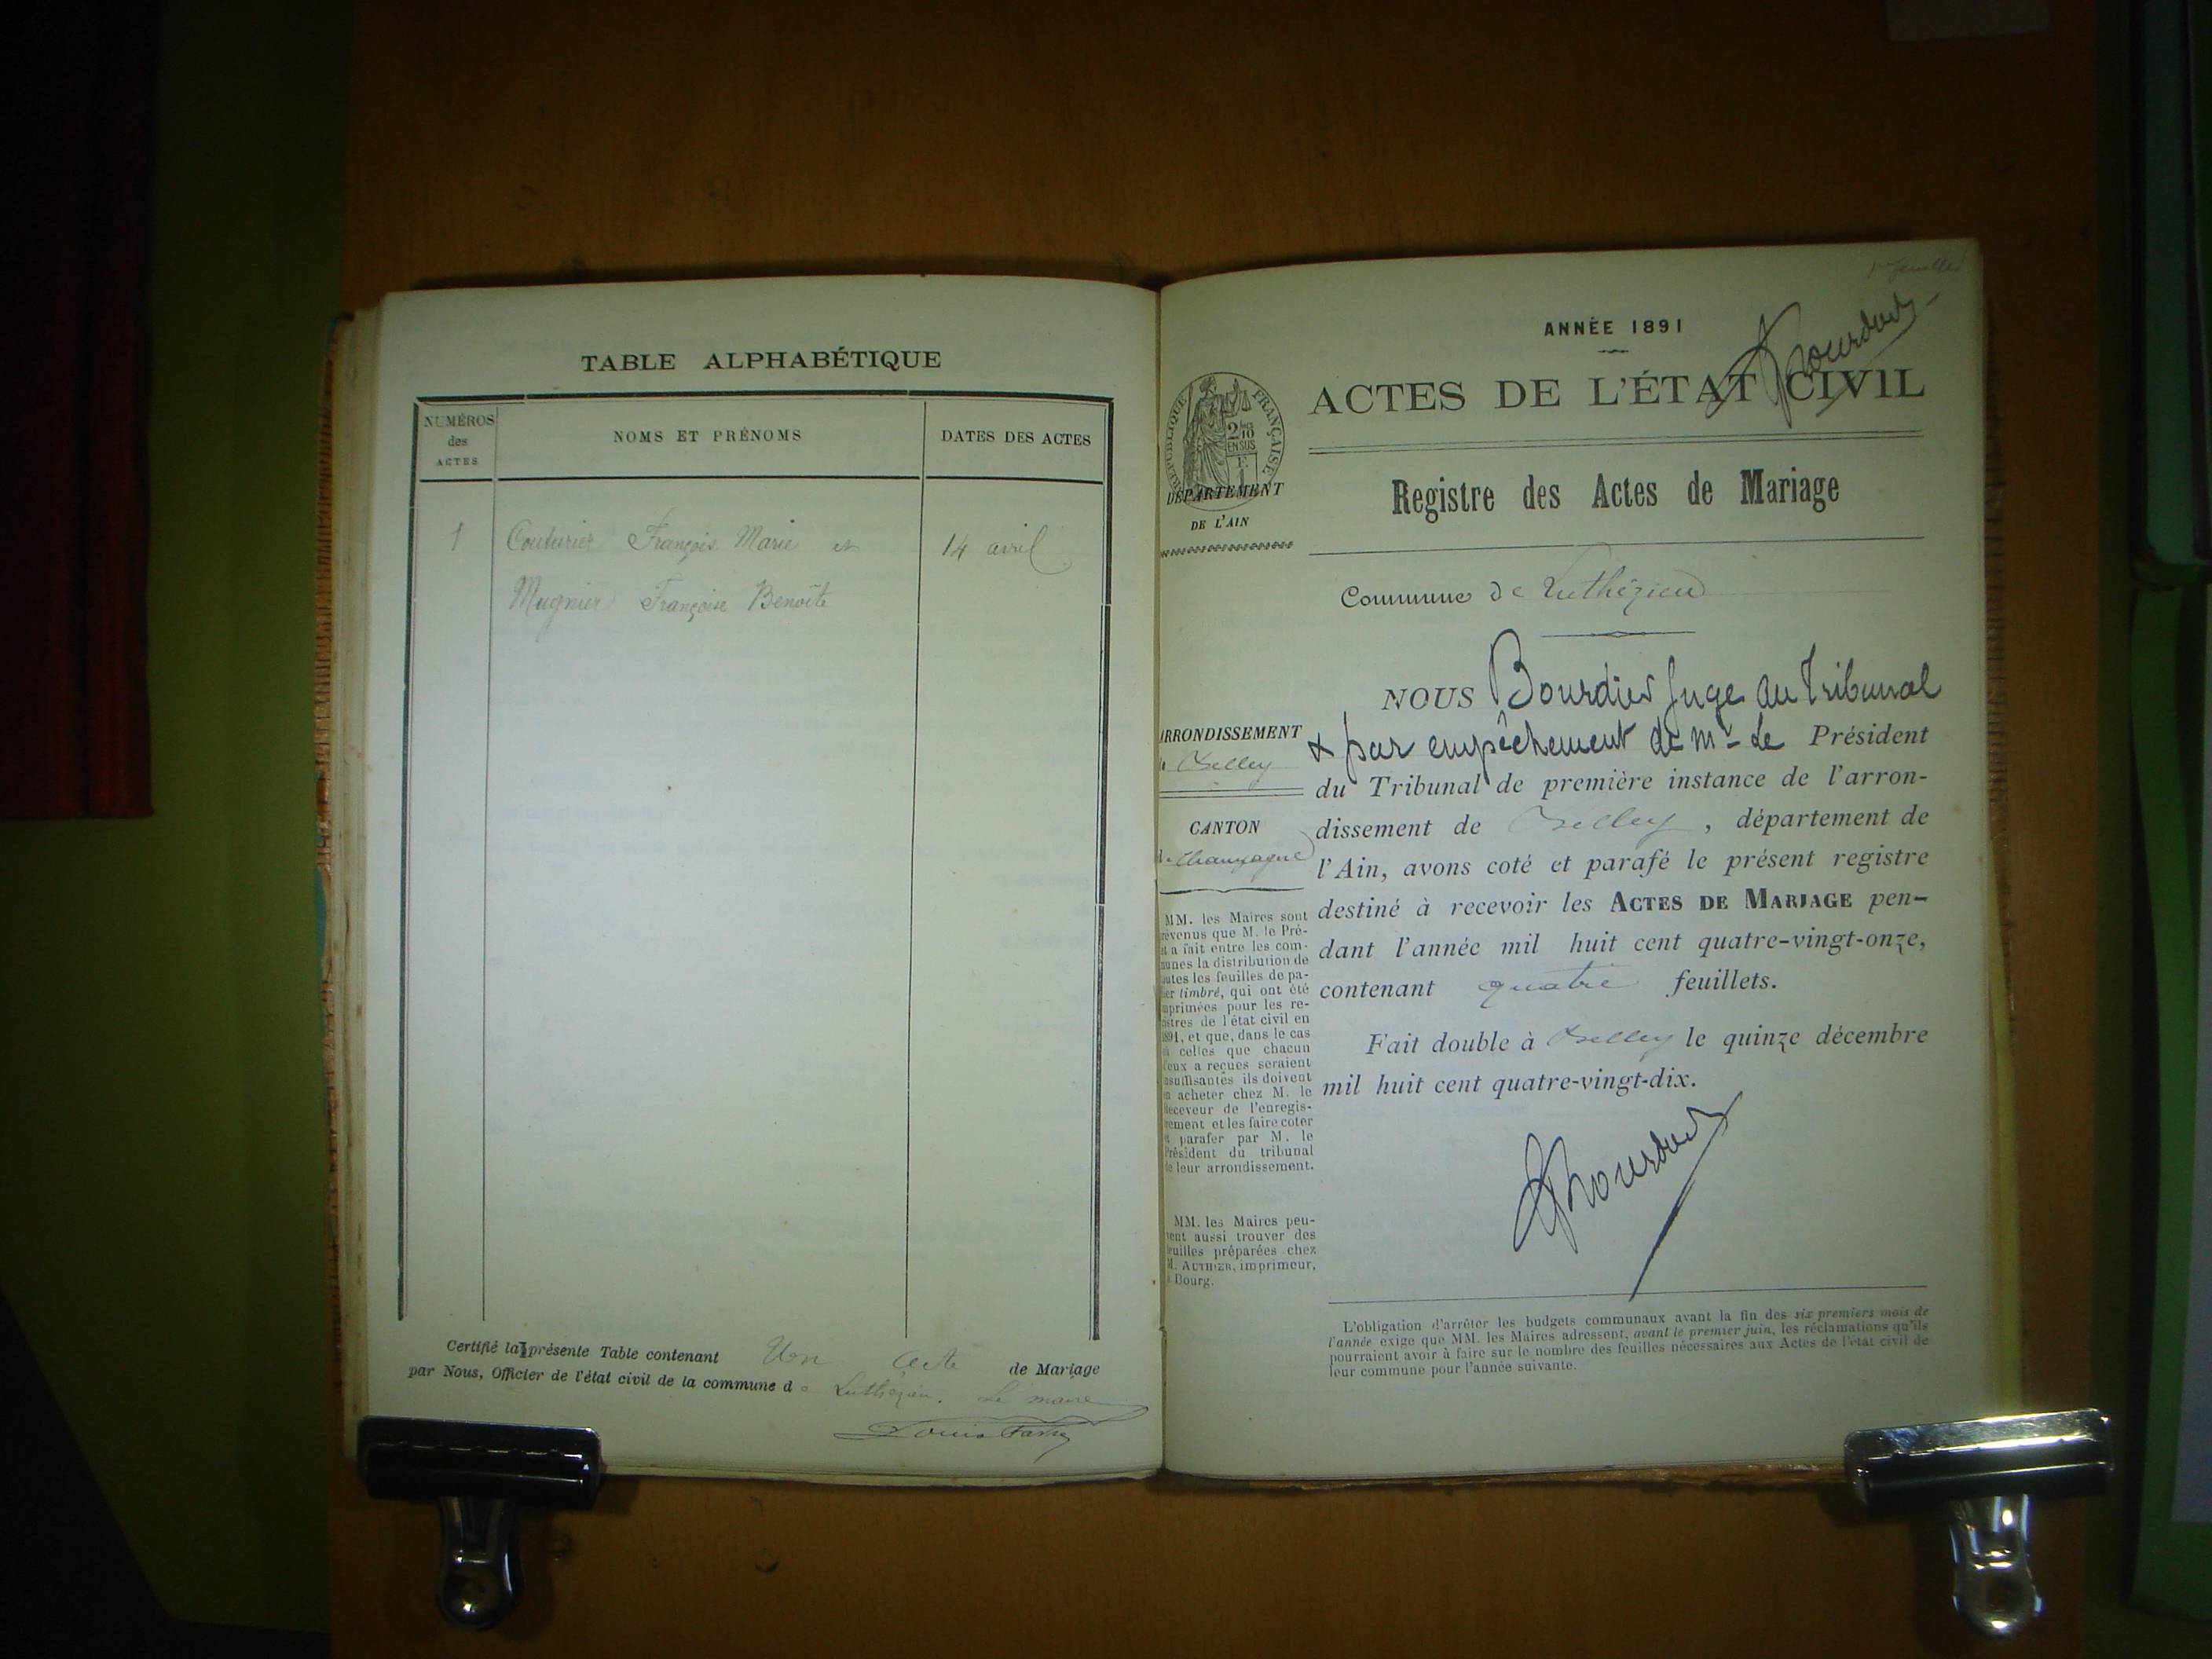 TABLE ALPHABÉTIQUE
NUMÉROS des ACTES
NOMS ET PRÉNOMS
DATES DES ACTES
1 Couturier François Marie et 14 avril
Mugnier Françoise Benoîte
Certifié la présente Table contenant Un acte de Mariage
par Nous, Officier de l'état civil de la commune de Luthézieu. Le maire
Louis
1er feuillet
ANNÉE 1891
ACTES DE L'ÉTAT CIVIL
RÉPUBLIQUE FRANÇAISE
2/10
EN SUS
DÉPARTEMENT
DE L'AIN
Registre des Actes de Mariage
Commune de Luthézieu
ARRONDISSEMENT
de Belley
CANTON
de Champagne
MM. les Maires sont
prévenus que M. le Pré-
fet a fait entre les com-
munes la distribution de
toutes les feuilles de pa-
pier timbré, qui ont été
imprimées pour les re-
gistres de l'état civil en
1891, et que, dans le cas
où celles que chacun
d'eux a reçues seraient
insuffisantes ils doivent
en acheter chez M. le
Receveur de l'enregis-
trement et les faire coter
et parafer par M. le
Président du tribunal
de leur arrondissement.
MM. les Maires peu-
vent aussi trouver des
feuilles préparées chez
M. AUTHIER, imprimeur,
à Bourg.
NOUS Bourdier Juge au Tribunal
& par empêchement de Mr Le Président
du Tribunal de première instance de l'arron-
dissement de Belley, département de
l'Ain, avons coté et parafé le présent registre
destiné à recevoir les ACTES DE MARIAGE pen-
dant l'année mil huit cent quatre-vingt-onze,
contenant quatre feuillets.
Fait double à Belley le quinze décembre
mil huit cent quatre-vingt-dix.
L'obligation d'arrêter les budgets communaux avant la fin des six premiers mois de
l'année exige que MM. les Maires adressent, avant le premier juin, les réclamations qu'ils
pourraient avoir à faire sur le nombre des feuilles nécessaires aux Actes de l'état civil de
leur commune pour l'année suivante.